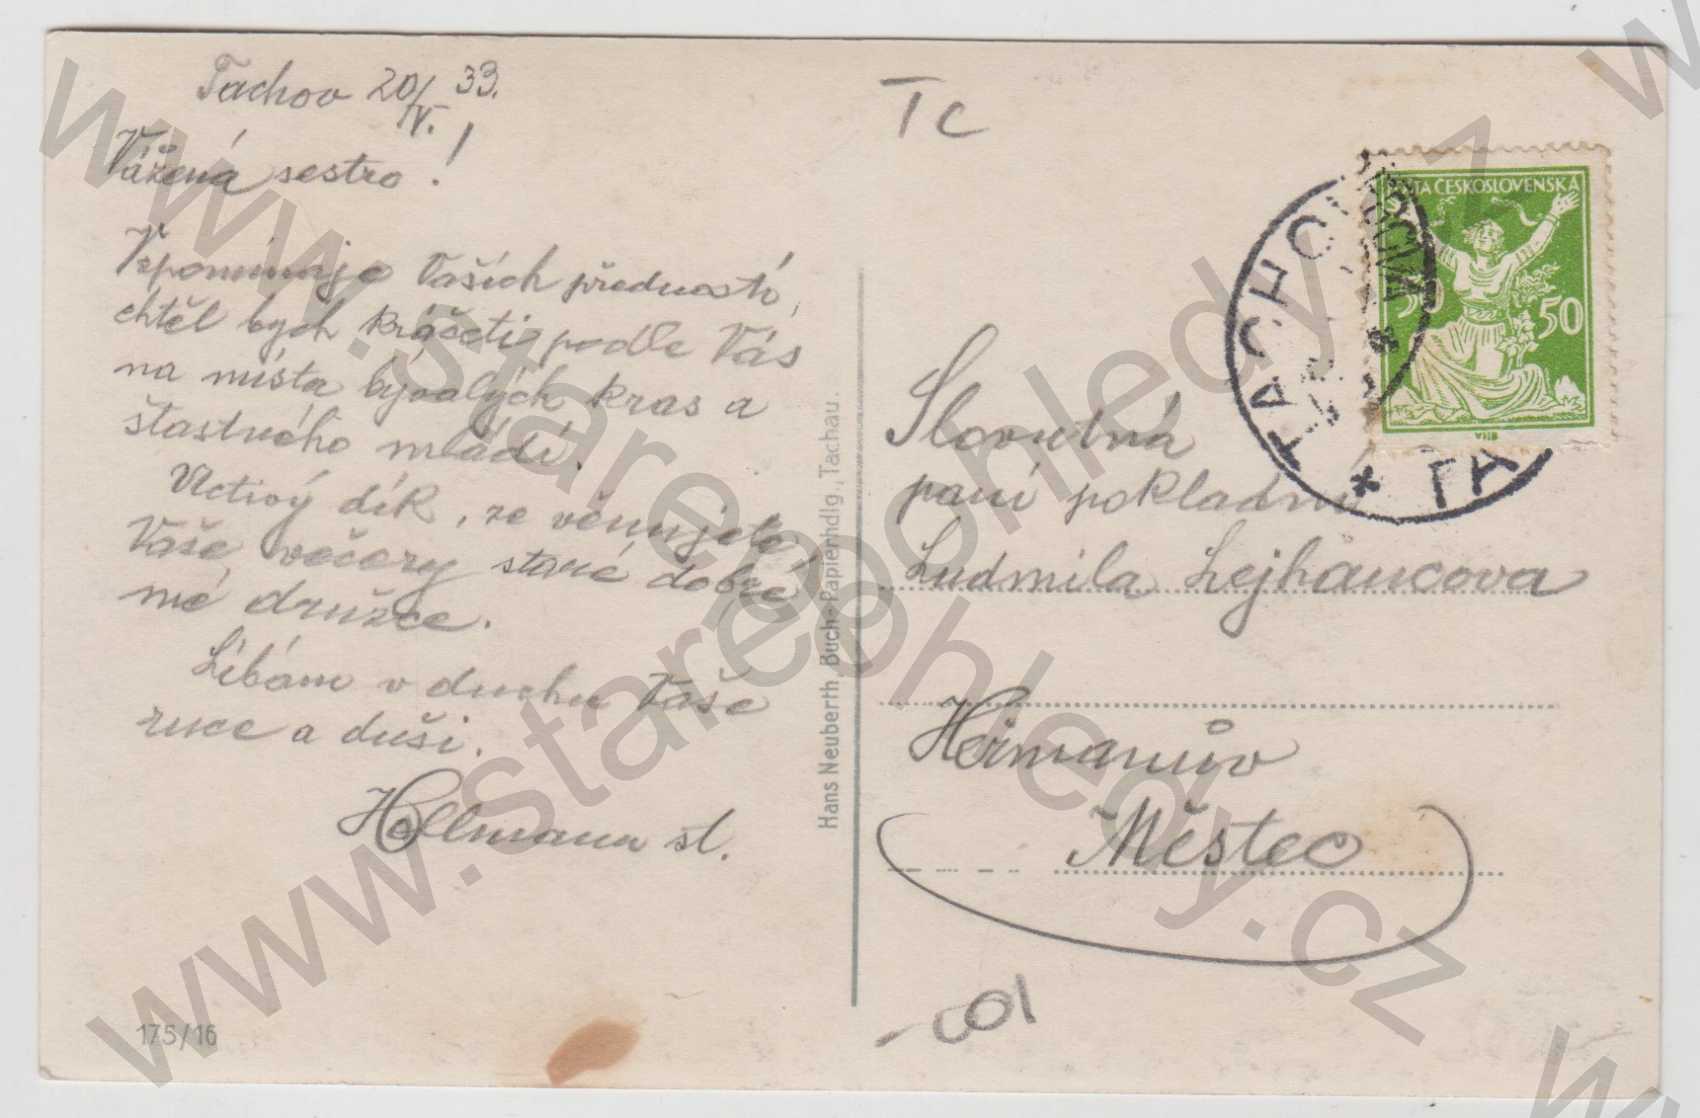 Tachov 20/IV. 33.
Vážená sestro!
Vzpomínaje Vašich předností,
chtěl bych kráčeti podle Vás
na místa bývalých kras a
šťastného mládí.
Uctivý dík, že věnujete
Vaše večery staré dobré
mé družce.
Líbám v duchu Vaše
ruce a duši.
Hollmann st.
175/16
Hans Neuberth, Buch-Papierhdlg., Tachau.
Tc
POŠTA ČESKOSLOVENSKÁ
50 50
TACHOV
TA
Slovutná
paní pokladní
Ludmila Lejhancova
Heřmanův
Městec
100-
www.starepohledy.cz
www.starepohledy.cz